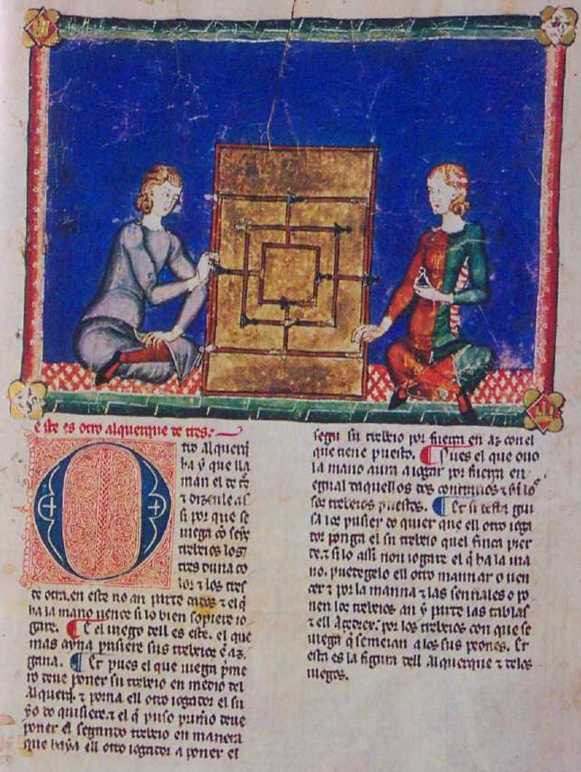 Este es otro alquerque de tres.
Otro alquerq̃
ha y que lla
man el de tres
⁊ dizenle as
si por que se
iuega cõ seys
trebeios los
tres duna co
lor ⁊ los tres
de otra. en este no an parte dados ⁊ el q̃
ha la mano uence si lo bien sopiere io
gar. El iuego dell es este. el que
mas ayna pusiere sus trebeios en az.
gana. Et pues el que iuega prime
ro deue poner su trebeio en medio del
alquerq̃. ⁊ porna ell otro iogador el su
yo do quisiere. ⁊ el q̃ puso primo deue
poner el segundo trebeio en manera
que haya ell otro iogador a poner el
su trebeio por fuerça en az con el
que tiene puesto. Pues el que ouo
la mano aura a iogar por fuerça en
egual daquellos dos
trebeios puestos. Et si desta gui
sa los pusier do quier que ell otro ioga
dor ponga el su trebeio quel finca pier
de. ⁊ si assi non iogare el q̃ ha la ma
no. puedegelo ell otro mannar o uen
cer ⁊ por la manna ⁊ las sennales o po
nen los trebeios an y parte las tablas
⁊ ell açedrex. por los trebeios con que se
iuega q̃ semeian a los sus peones. Et
esta es la figura dell alquerque ⁊ delos
iuegos.